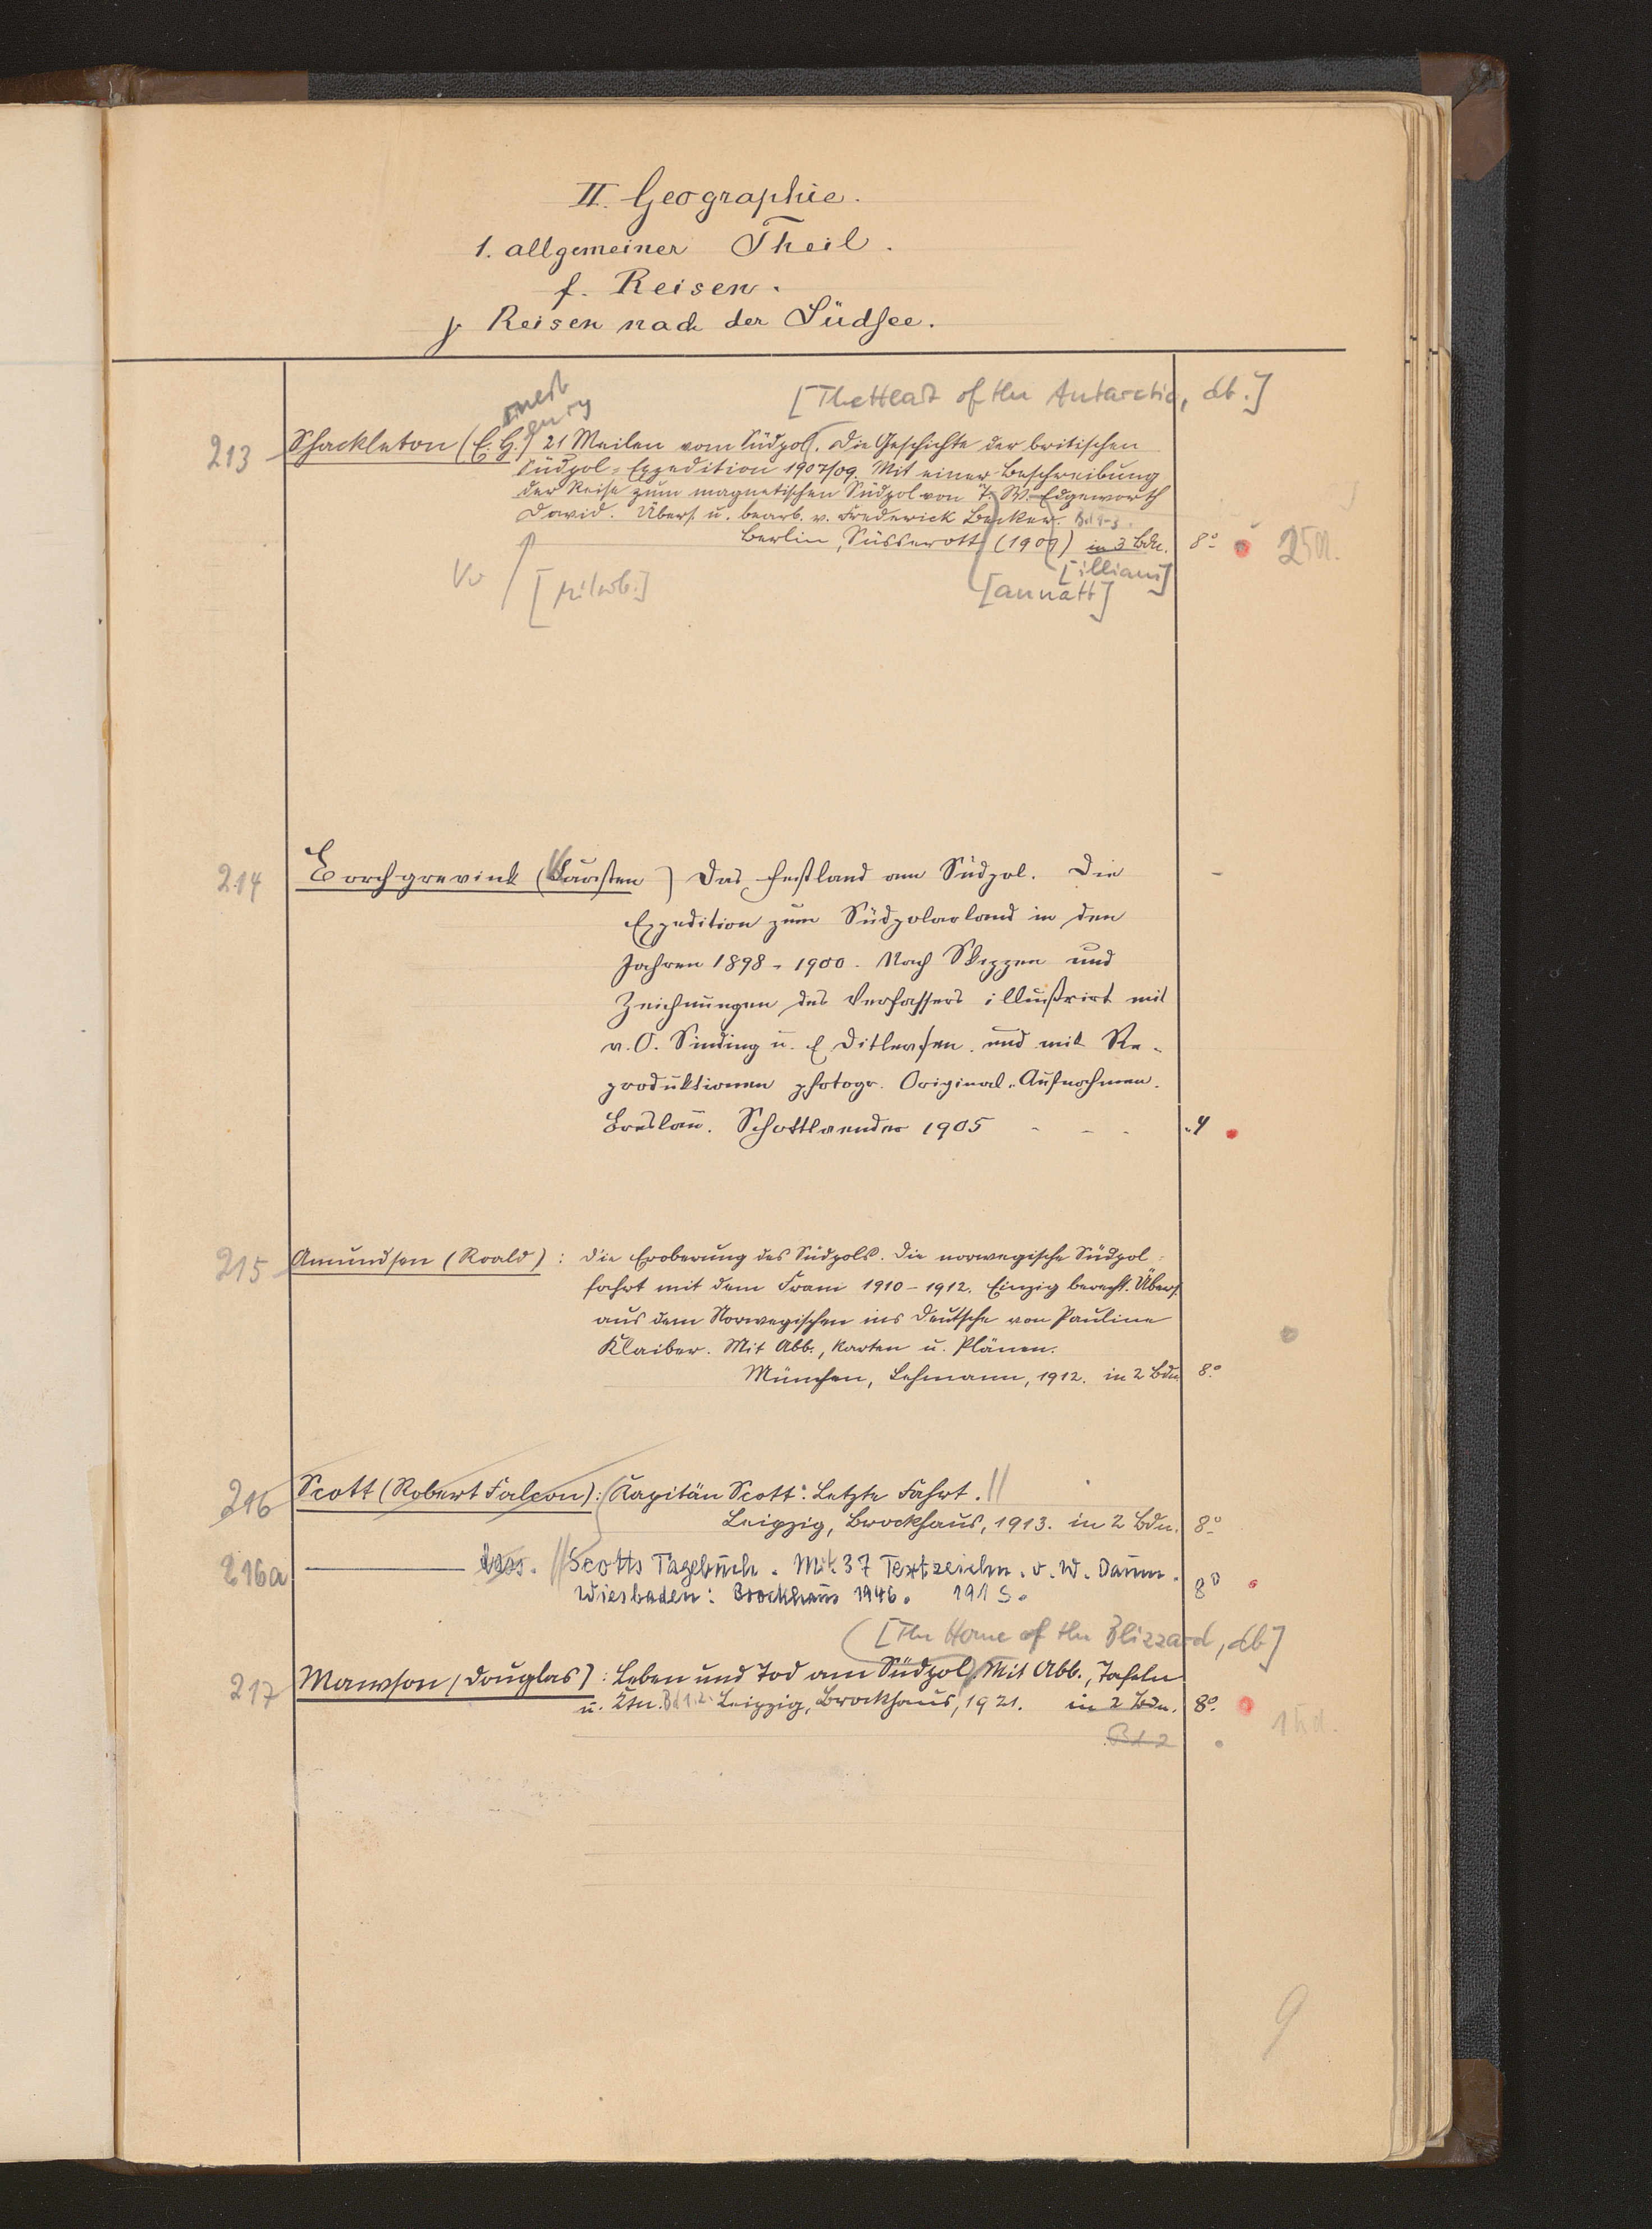 II. Geographie.
1. allgemeiner Theil.
f. Reisen.
γ Reisen nach der Südsee.
[The Heart of the Antarctic, dt.]
rnest
enry
213 Shackleton (E. H.) 21 Meilen vom Südpol. Die Geschichte der britischen
Südpol-Expedition 1907/09. Mit einer Beschreibung
der Reise zum magnetischen Südpol von T. W. Edgeworth
David. Übers. u. bearb. v. Frederick Becker. Bd 1-3.
Berlin, Süsserott (1909) in 3 Bdn. 8°
[illiam]
[annatt]
214 Borchgrevink (Carsten) Das Festland am Südpol. Die
Expedition zum Südpolarland in den
Jahren 1898-1900. Nach Skizzen und
Zeichnungen des Verfassers illustrirt mit
v. O. Sinding u. E. Ditlevsen. und mit Re-
produktionen photogr. Original-Aufnahmen.
Breslau. Schottlaender 1905 - - - 4
215 Amundsen (Roald): Die Eroberung des Südpols. Die norwegische Südpol-
fahrt mit dem Fram 1910-1912. Einzig berecht. Übers.
aus dem Norwegischen ins Deutsche von Pauline
Klaiber. Mit Abb., Karten u. Plänen.
München, Lehmann, 1912. in 2 Bdn. 8°
216 Scott (Robert Falcon): Kapitän Scott: Letzte Fahrt.
Leipzig, Brockhaus, 1913. in 2 Bdn. 8°
216a Scotts Tagebuch. Mit 37 Textzeichn. v. W. Daum.
Wiesbaden: Brockhaus 1946. 191 S. 8°
[The Home of the Blizzard, dt]
217 Mawson (Douglas): Leben und Tod am Südpol. Mit Abb., Tafeln
u. Ktn. Bd 1.2. Leipzig, Brockhaus, 1921. in 2 Bdn. 8°
Bd 2
9